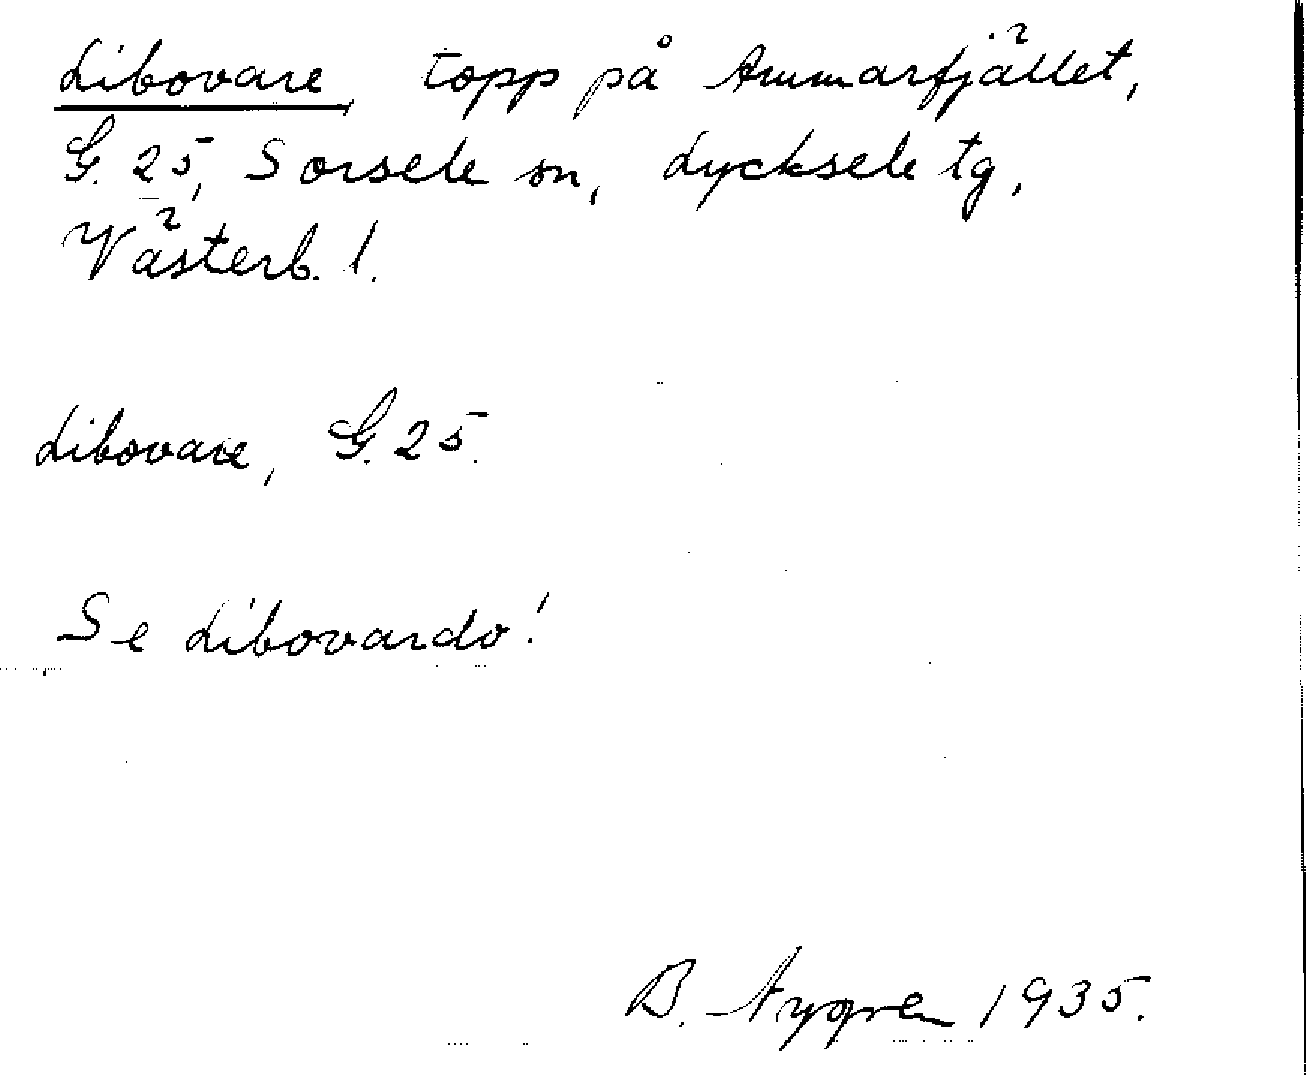 Libovare, topp på Ammarfjället,
G. 25, Sorsele sn, Lycksele tg,
Västerb. l.
Libovare, G. 25.
Se Libovardo!
B. Nygren 1935.